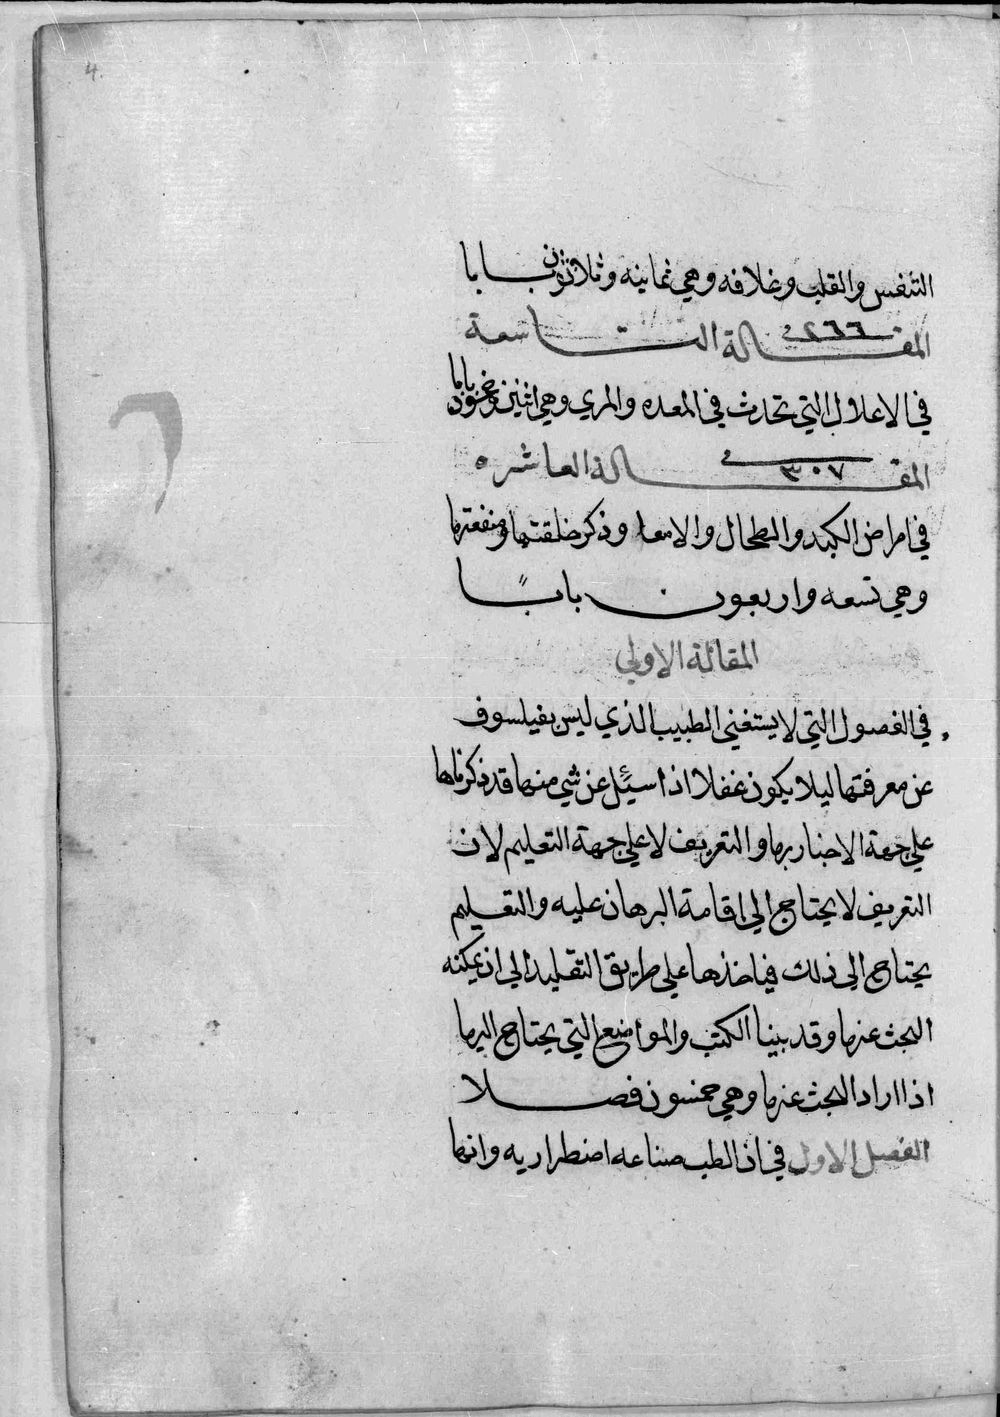 4.
التنفس والقلب وغلافه وهي ثمانيه وثلاثون بابا
المقالة التاسعة ٢٦٦
في الاعلال التي تحدث في المعده والمري وهي اثنين وخمسون بابا
المقالة العاشره ٣٠٧
في امراض الكبد والطحال والامعا وذكر خلقتها ومنفعتها
وهي تسعه واربعون بابًا
المقالة الاولي
في الفصول التي لا يستغني الطبيب الذي ليس بفيلسوف
عن معرفتها ليلا يكون غفلا اذا سئل عن شي منها قد ذكرناها
علي جهة الاخبار بها والتعريف لا علي جهة التعليم لان
التعريف لا يحتاج الي اقامة البرهان عليه والتعليم
يحتاج الي ذلك فياخذها علي طريق التقليد الي ان يمكنه
البحث عنها وقد بينا الكتب والمواضع التي يحتاج اليها
اذا اراد البحث عنها وهي خمسون فصلا
الفصل الاول في ان الطب صناعه اضطراريه وانها